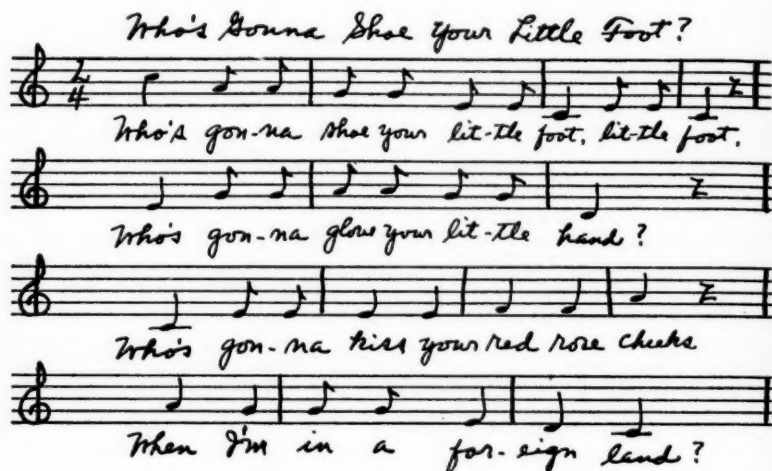 Who's Gonna Shoe Your Little Foot?
2
4
Who's gon-na shoe your lit-tle foot, lit-tle foot,
Who's gon-na glove your lit-tle hand?
Who's gon-na kiss your red rose cheeks
When I'm in a for-eign land?